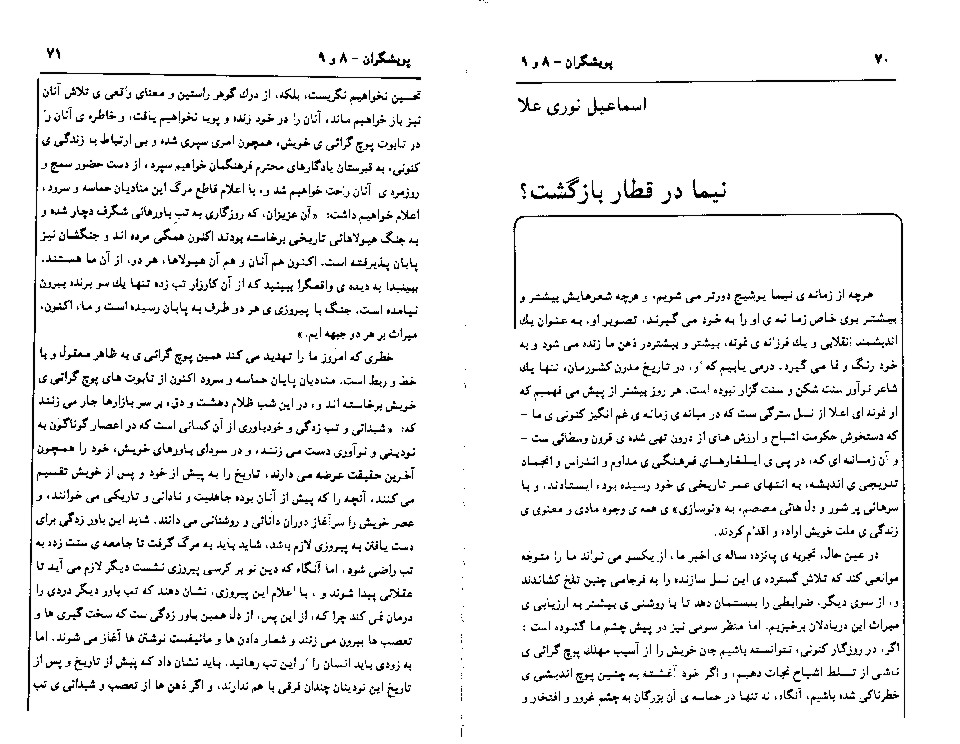 ۷۰
پویشگران - ۸ و ۹
اسماعیل نوری علا
نیما در قطار بازگشت؟
هرچه از زمانه ی نیما یوشیج دورتر می شویم، و هرچه شعرهایش بیشتر و
بیشتر بوی خاص زمانه ی او را به خود می گیرند، تصویر او، به عنوان یك
اندیشمند انقلابی و یك فرزانه ی غوله، بیشتر و بیشتردر ذهن ما زنده می شود و به
خود رنگ و قا می گیرد. درمی یابیم که او، در تاریخ مدرن کشورمان، تنها یك
شاعر نوآور سنت شکن و سنت گزار نبوده است. هر روز بیشتر از پیش می فهمیم که
او نمونه ای اعلا از نسل سترگی ست که در میانه ی زمانه ی غم انگیز کنونی ی ما -
که دستخوش حکومت اشباح و ارزش های از درون تهی شده ی قرون وسطائی ست -
و آن زمانه ای که، در پی ی ایلغارهای فرهنگی ی مداوم و اندراس و انجماد
تدریجی ی اندیشه، به انتهای عمر تاریخی ی خود رسیده بود، ایستادند، و با
سرهائی پر شور و دل هائی مصمم، به «نوسازی» ی همه ی وجوه مادی و معنوی ی
زندگی ی ملت خویش اراده و اقدام کردند.
در عین حال، تجربه ی پانزده ساله ی اخیر ما، از یکسو می تواند ما را متوجه
موانعی کند که تلاش گسترده ی این نسل سازنده را به فرجامی چنین تلخ کشاندند
و، از سوی دیگر، ضرابطی را بدستمان دهد تا با روشنی ی بیشتر به ارزیابی ی
میراث این دریادلان برخیزیم. اما منظر سومی نیز در پیش چشم ما گشوده است :
اگر، در روزگار کنونی، نتوانسته باشیم جان خویش را از آسیب مهلك پوچ گرائی ی
ناشی از تسلط اشباح نجات دهیم، و اگر خود آغشته به چنین پوچ اندیشی ی
خطرناکی شده باشیم، آنگاه، نه تنها در حماسه ی آن بزرگان به چشم غرور و افتخار و
پویشگران - ۸ و ۹
۷۱
تحسین نخواهیم نگریست، بلکه، از درك گوهر راستین و معنای واقعی ی تلاش آنان
نیز باز خواهیم ماند، آنان را در خود زنده و پویا نخواهیم یافت، و خاطره ی آنان را
در تابوت پوچ گرائی ی خویش، همچون امری سپری شده و بی ارتباط با زندگی ی
کنونی، به قبرستان یادگارهای محترم فرهنگمان خواهیم سپرد، از دست حضور سمج و
روزمره ی آنان راحت خواهیم شد و، با اعلام قاطع مرگ این منادیان حماسه و سرود،
اعلام خواهیم داشت: «آن عزیزان، که روزگاری به تب باورهائی شگرف دچار شده و
به جنگ هیولاهائی تاریخی برخاسته بودند اکنون همگی مرده اند و جنگشان نیز
پایان پذیرفته است. اکنون هم آنان و هم آن هیولاها، هر دو، از آن ما هستند.
ببینیدا به دیده ی واقعگرا ببینید که از آن کارزار تب زده تنها یك سو برنده بیرون
نیامده است. جنگ با پیروزی ی هر دو طرف به پایان رسیده است و ما، اکنون،
میراث بر هر دو جبهه ایم.»
خطری که امروز ما را تهدید می کند همین پوچ گرائی ی به ظاهر معقول و با
خط و ربط است. منادیان پایان حماسه و سرود اکنون از تابوت های پوچ گرائی ی
خویش برخاسته اند و، در این شب ظلام دهشت و دق، بر سر بازارها جار می زنند
که: «شیدائی و تب زدگی و خودباوری از آن کسانی است که در اعصار گوناگون به
نودینی و نوآوری دست می زنند، و در سودای باورهای خویش، خود را همچون
آخرین حقیقت عرضه می دارند، تاریخ را به پیش از خود و پس از خویش تقسیم
می کنند، آنچه را که پیش از آنان بوده جاهلیت و نادانی و تاریکی می خوانند، و
عصر خویش را سرآغاز دوران دانائی و روشنائی می دانند. شاید این باور زدگی برای
دست یافتن به پیروزی لازم باشد، شاید باید به مرگ گرفت تا جامعه ی سنت زده به
تب راضی شود، اما آنگاه که دین نو بر کرسی پیروزی نشست دیگر لازم می آید تا
عقلائی پیدا شوند و، با اعلام این پیروزی، نشان دهند که تب باور دیگر دردی را
درمان نمی کند چرا که، از این پس، از دل همین باور زدگی ست که سخت گیری ها و
تعصب ها بیرون می زنند و شعار دادن ها و مانیفست نوشتن ها آغاز می شوند. اما
به زودی باید انسان را از این تب رهانید. باید نشان داد که پیش از تاریخ و پس از
تاریخ این نودینان چندان فرقی با هم ندارند، و اگر ذهن ها از تعصب و شیدائی ی تب